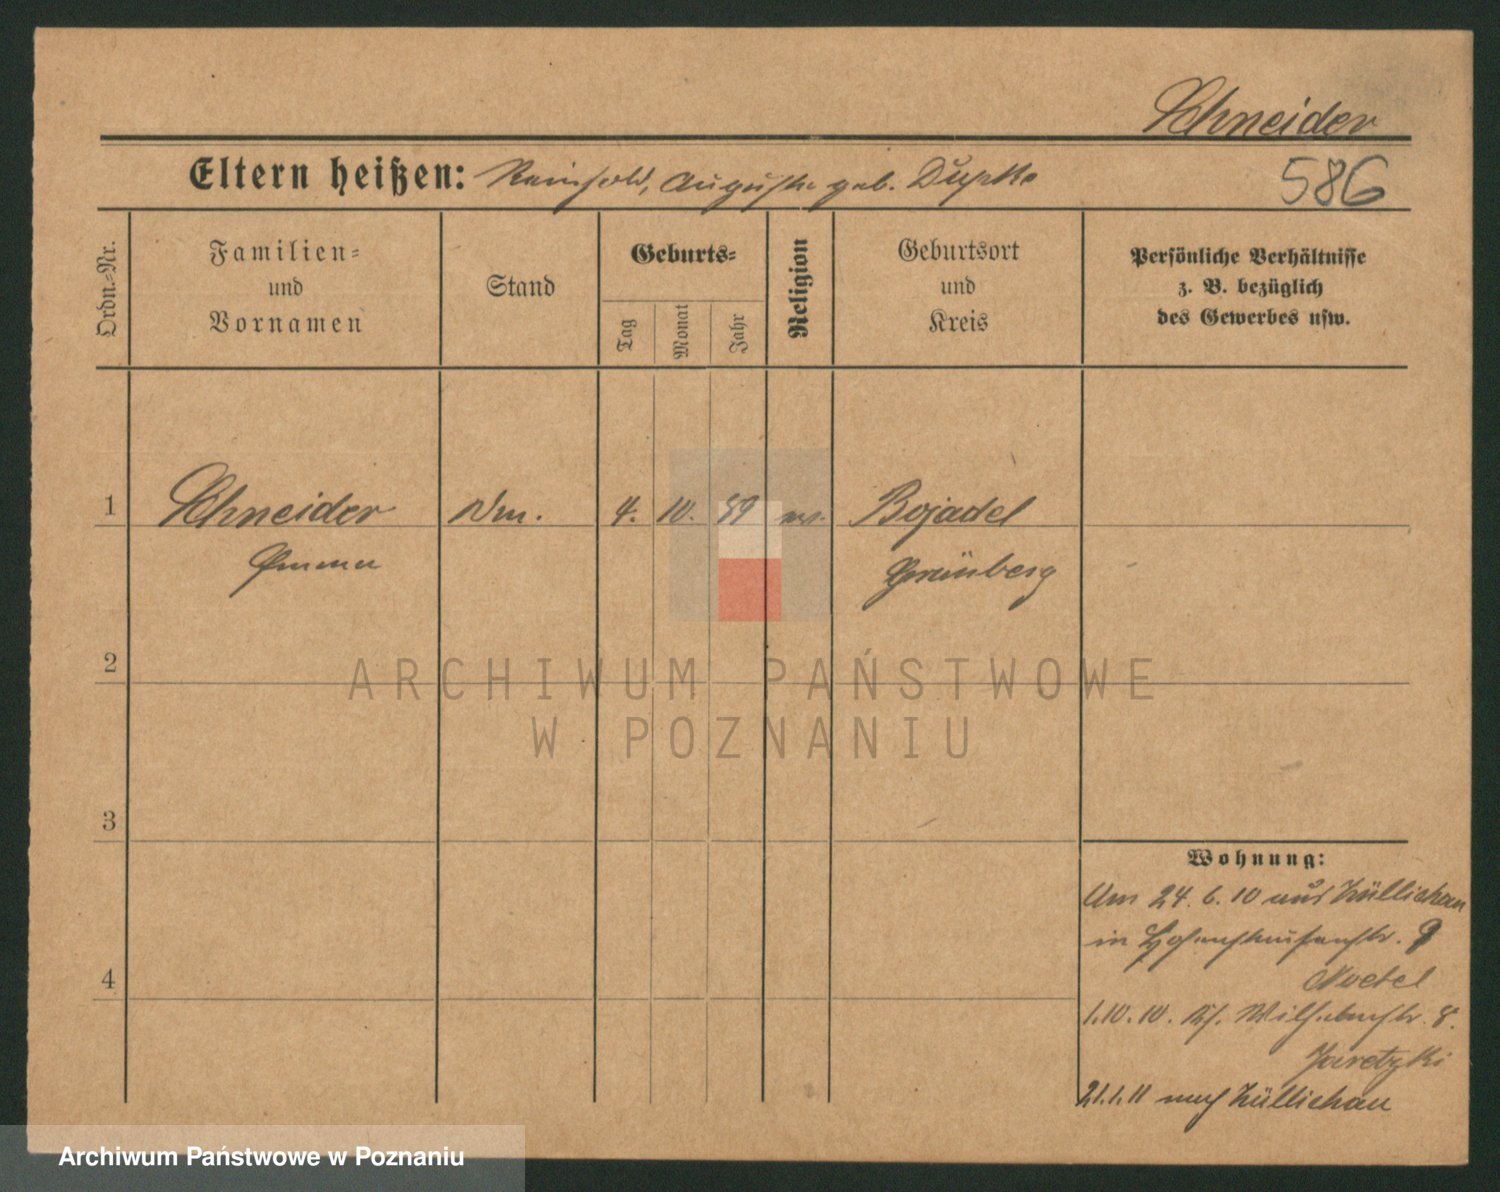 Schneider
Eltern heißen: Reinhold, Auguste geb. Dupke
586
Ordn.-Nr.
Familien-
und
Vornamen
Stand
Geburts-
Tag
Monat
Jahr
Religion
Geburtsort
und
Kreis
Persönliche Verhältnisse
z. B. bezüglich
des Gewerbes usw.
1 Schneider 4. 10. 89 Bojadel
Emma Grünberg
2
ARCHIWUM PAŃSTWOWE
W POZNANIU
3
4
Wohnung:
Am 24. 6. 10 aus Züllichau
in Hohenstaufenstr. 9
Noetel
1.10.10. Wilhelmstr. 8.
Jaretzki
21.1.11 nach Züllichau
Archiwum Państwowe w Poznaniu